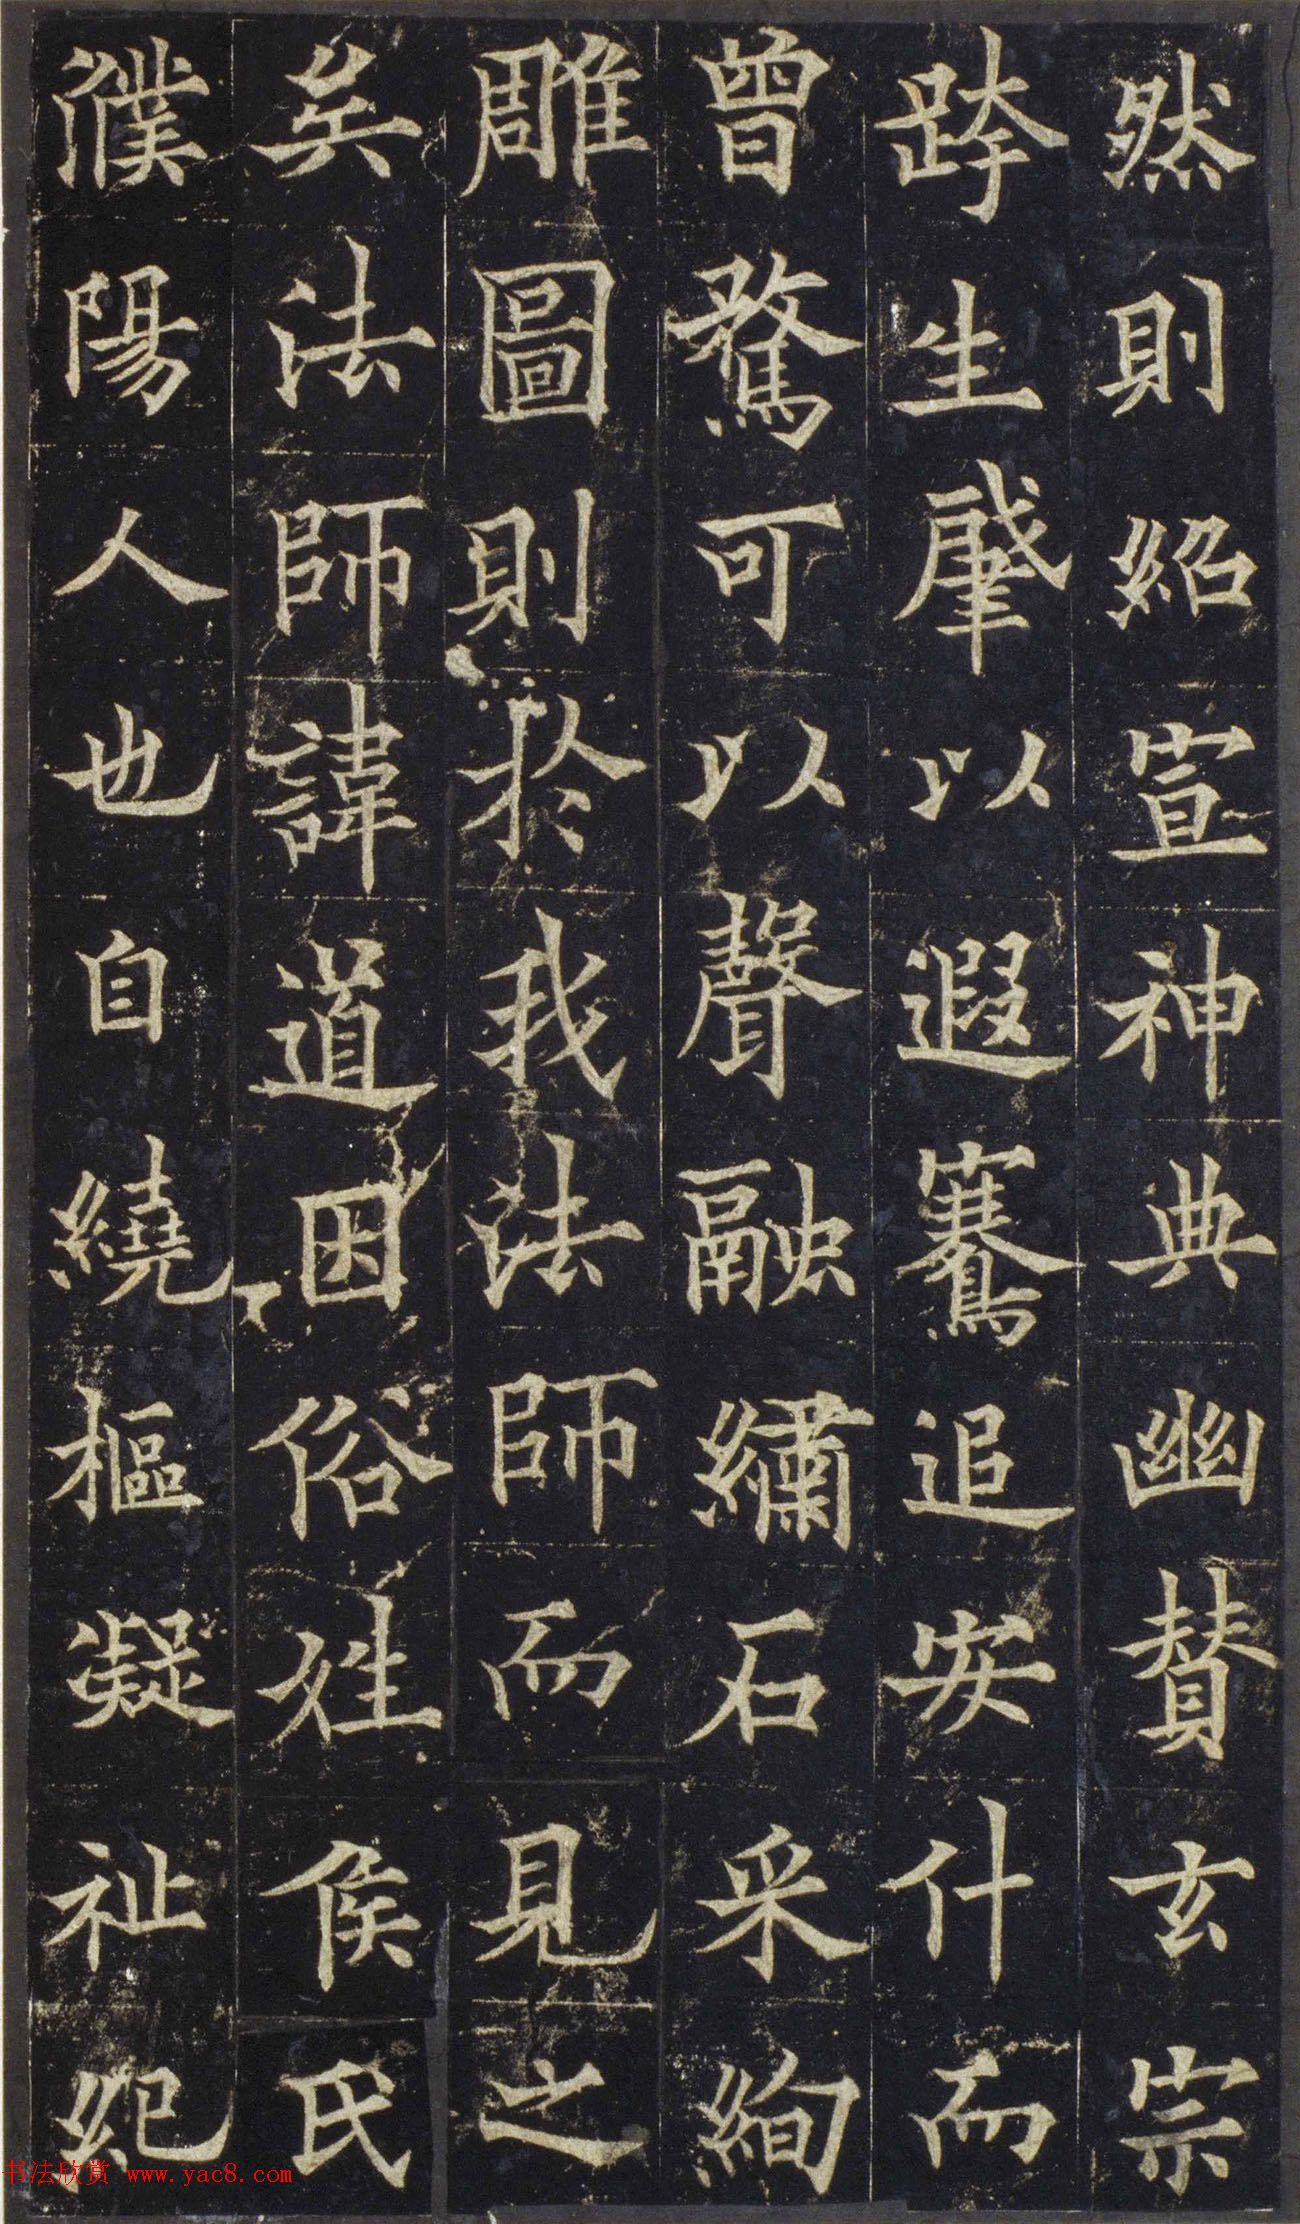 然則紹宣神典幽賛玄宗
跨生肇以遐騫追安什而
曾騖可以聲融繡石采絢
雕圖則於我法師而見之
矣法師諱道因俗姓侯氏
濮陽人也自繞樞凝祉紀
书法欣赏 www.yac8.com